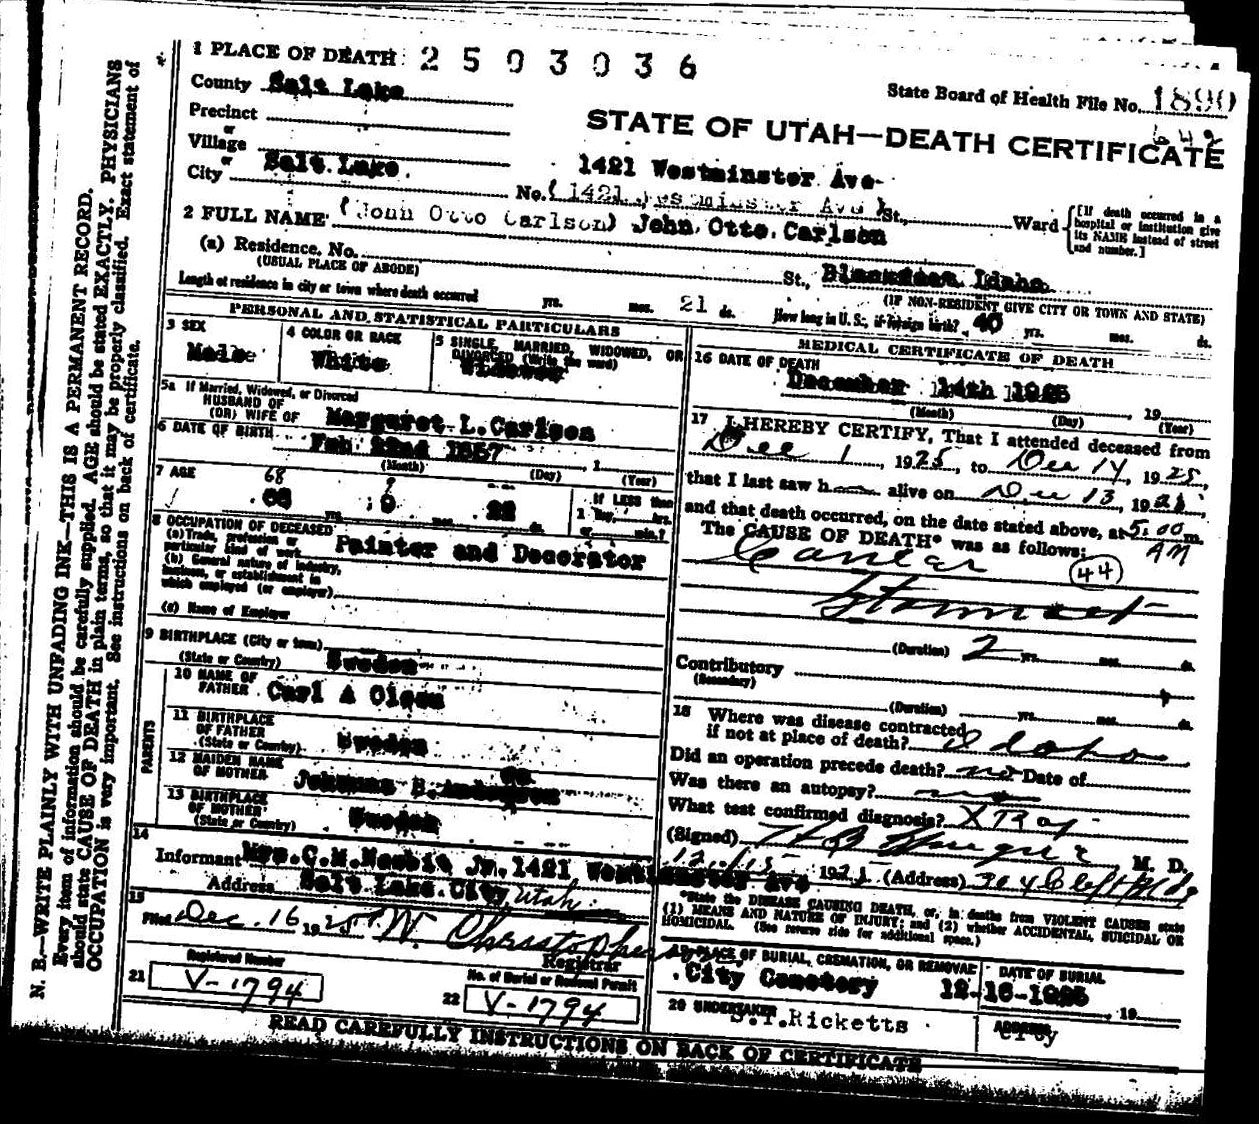 1 PLACE OF DEATH 2503036
State Board of Health File No. 1890
County Salt Lake
642
Precinct
or
STATE OF UTAH—DEATH CERTIFICATE
Village
or
City Salt Lake.
1421 Westminster Ave
No. (1421 Westminster Ave) St., Ward
[If death occurred in a hospital or institution give its NAME instead of street and number.]
2 FULL NAME (John Otto Carlson) John Otto Carlson
(a) Residence, No. St., Blackfoot Idaho
(USUAL PLACE OF ABODE)
(IF NON-RESIDENT GIVE CITY OR TOWN AND STATE)
Length of residence in city or town where death occurred yrs. mos. 21 ds. How long in U. S., if foreign birth? 40 yrs. mos. ds.
PERSONAL AND STATISTICAL PARTICULARS
3 SEX
Male
4 COLOR OR RACE
White
5 SINGLE, MARRIED, WIDOWED, OR
DIVORCED (Write the word)
Widower
5a If Married, Widowed, or Divorced
HUSBAND OF
(OR) WIFE OF Margaret L. Carlson
6 DATE OF BIRTH Feb 22nd 1857
(Month) (Day) (Year)
7 AGE
68 9
yrs. 9 mos. 22 ds.
If LESS than
1 day, hrs.
or min.?
8 OCCUPATION OF DECEASED
(a) Trade, profession or
particular kind of work
Painter and Decorator
(b) General nature of industry,
business, or establishment in
which employed (or employer)
(c) Name of Employer
9 BIRTHPLACE (City or town)
(State or Country) Sweden
PARENTS
10 NAME OF
FATHER Carl A Olsen
11 BIRTHPLACE
OF FATHER
(State or Country) Sweden
12 MAIDEN NAME
OF MOTHER Johanna S. Anderson
13 BIRTHPLACE
OF MOTHER
(State or Country) Sweden
14
Informant Mrs. C.M. Nesbit Jr. 1421 Westminster Ave
Address Salt Lake City, Utah
15
Filed Dec. 16 1925 W. Christopherson
Registrar
Registered Number
21 V-1794
No. of Burial or Removal Permit
22 V-1794
MEDICAL CERTIFICATE OF DEATH
16 DATE OF DEATH
December 14th 1925, 19
(Month) (Day) (Year)
17 I HEREBY CERTIFY, That I attended deceased from
Dec 1, 1925, to Dec 14, 1925,
that I last saw h alive on Dec 13, 1925,
and that death occurred, on the date stated above, at 5:00 m.
AM
The CAUSE OF DEATH* was as follows:
Cancer (44)
Stomach
(Duration) 2 yrs. mos. ds.
Contributory
(Secondary)
(Duration) yrs. mos. ds.
18 Where was disease contracted
if not at place of death? Idaho
Did an operation precede death? no Date of
Was there an autopsy? no
What test confirmed diagnosis? X Ray
(Signed) M. D.
12/15 1925 (Address) 304 Clift Bldg
*State the DISEASE CAUSING DEATH, or, in deaths from VIOLENT CAUSES state
(1) MEANS AND NATURE OF INJURY; and (2) whether ACCIDENTAL, SUICIDAL OR
HOMICIDAL. (See reverse side for additional space.)
19 PLACE OF BURIAL, CREMATION, OR REMOVAL
City Cemetery
DATE OF BURIAL
12-16-1925, 19
20 UNDERTAKER
S.T. Ricketts
ADDRESS
City
READ CAREFULLY INSTRUCTIONS ON BACK OF CERTIFICATE
N. B.—WRITE PLAINLY WITH UNFADING INK—THIS IS A PERMANENT RECORD.
Every item of information should be carefully supplied. AGE should be stated EXACTLY. PHYSICIANS
should state CAUSE OF DEATH in plain terms, so that it may be properly classified. Exact statement of
OCCUPATION is very important. See instructions on back of certificate.